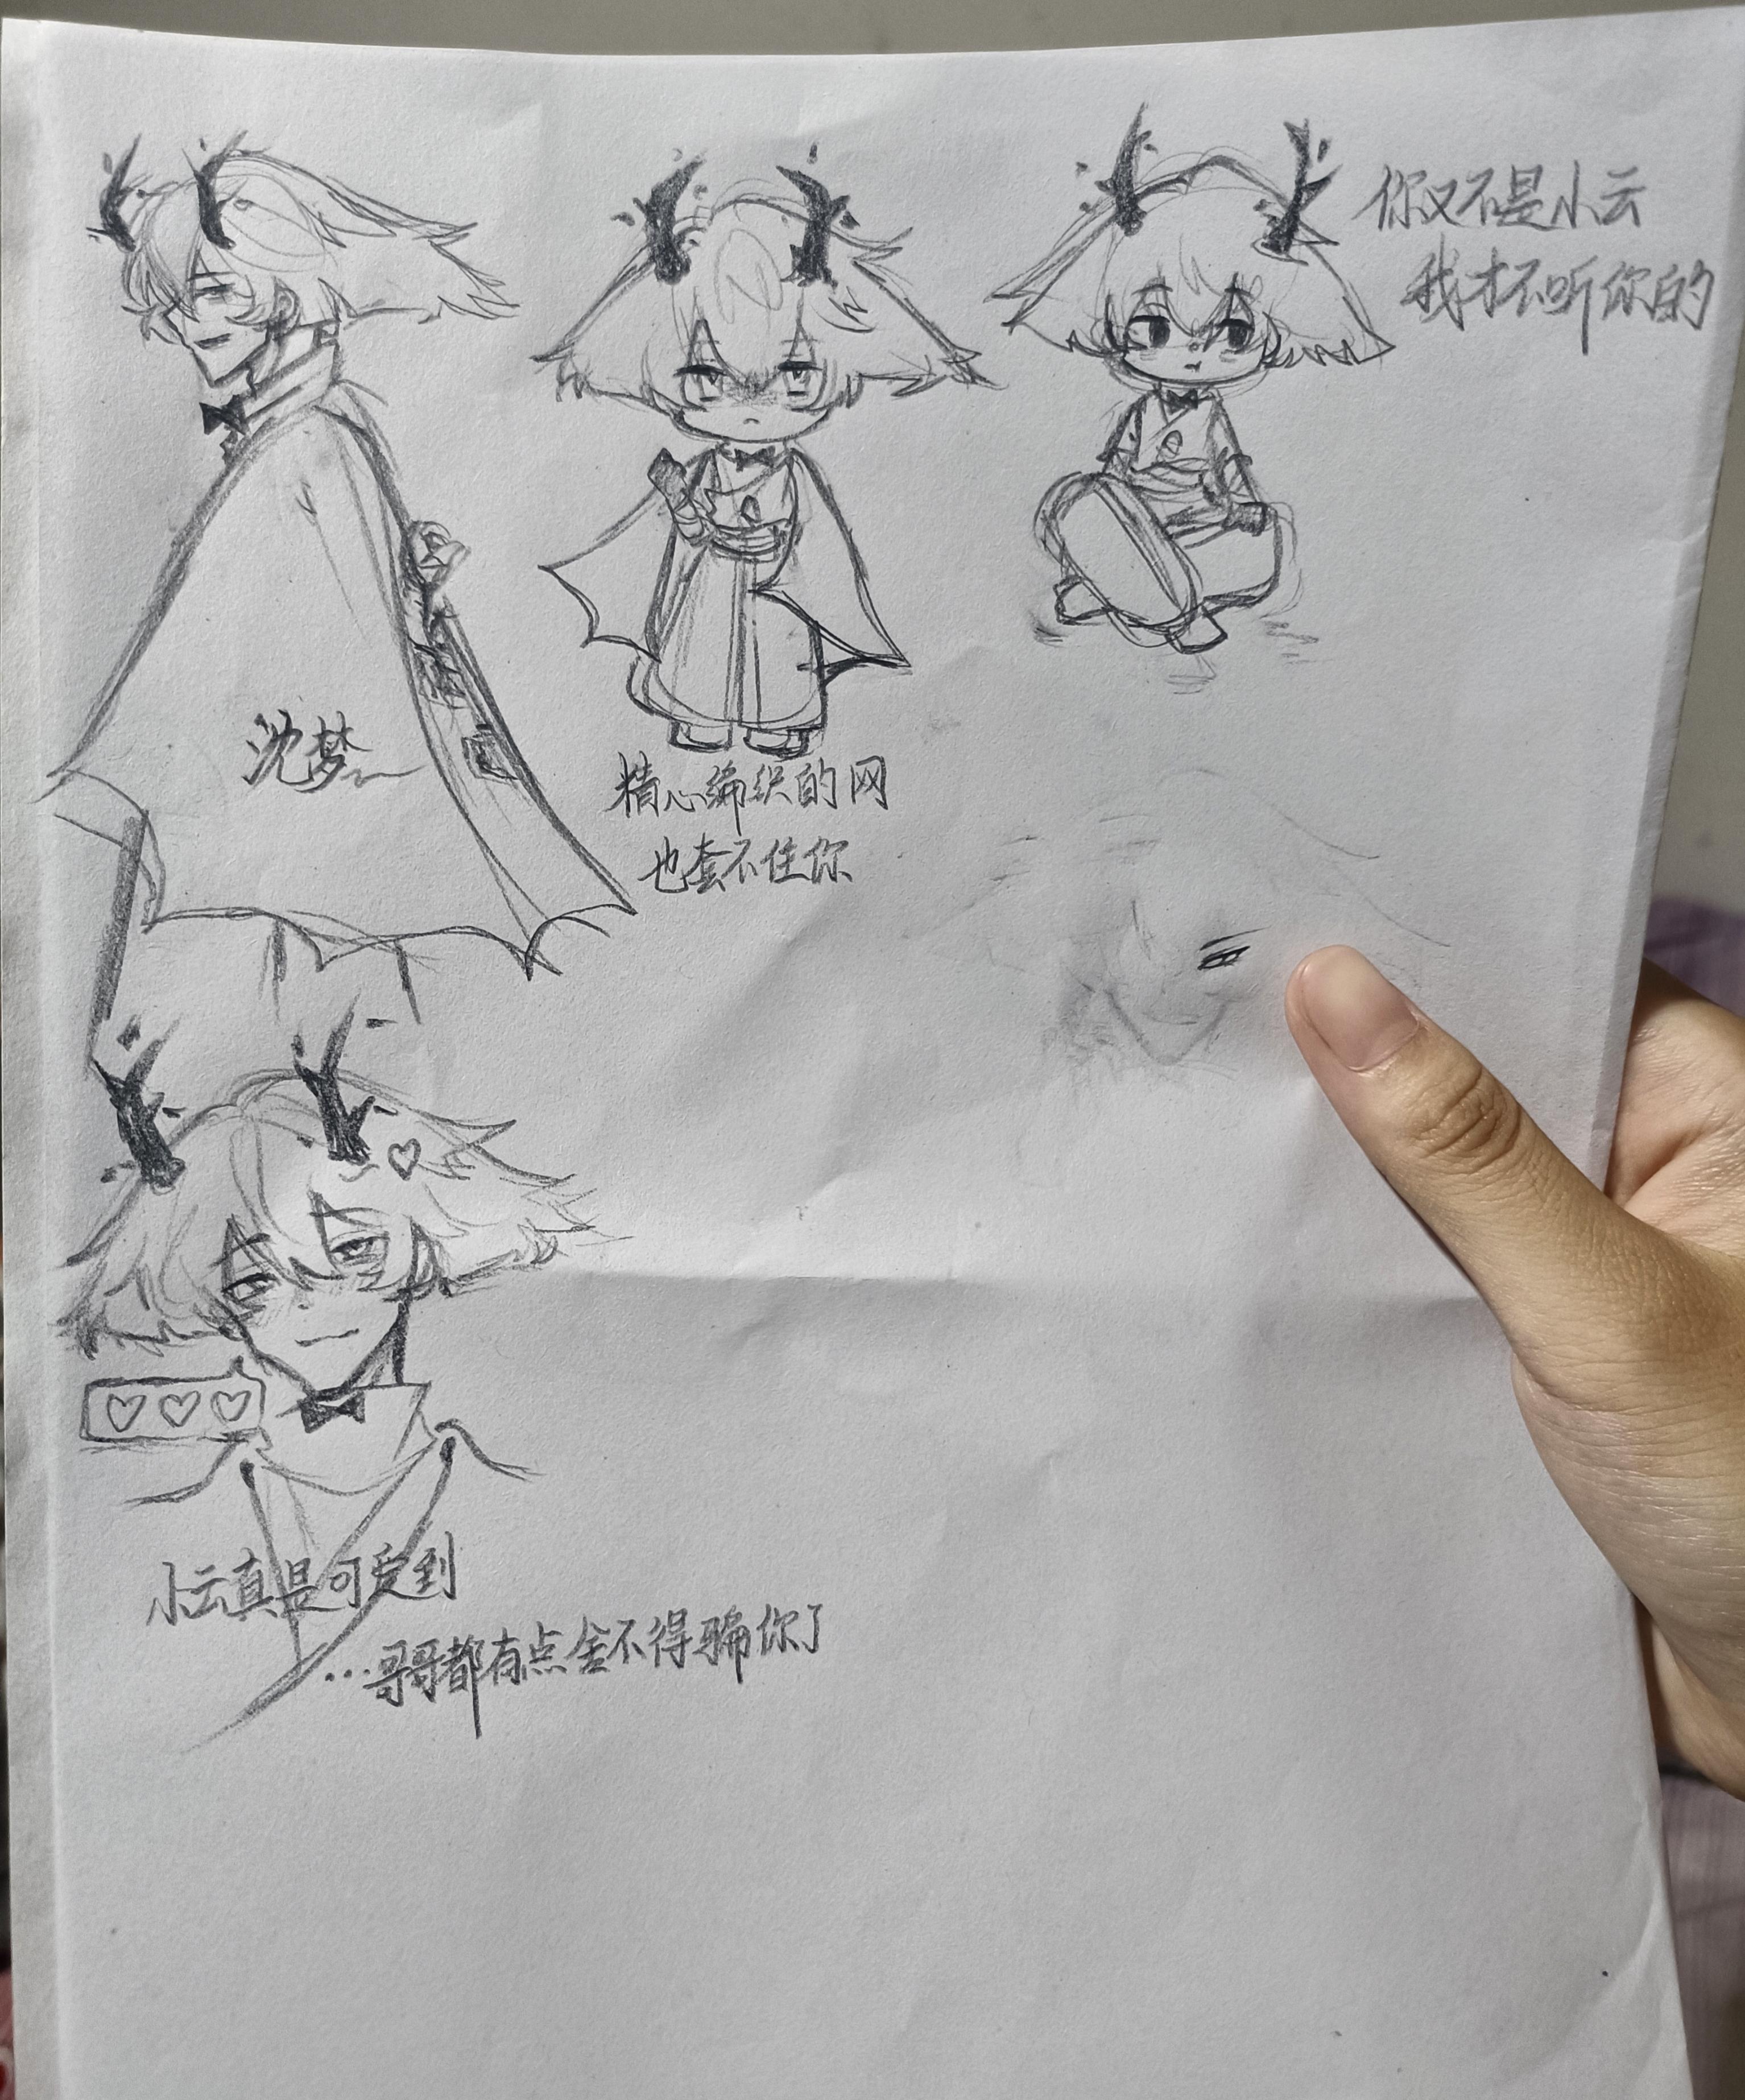 你又不是小云
我才不听你的
沈梦
精心编织的网
也套不住你
小云真是可爱到
…哥哥都有点舍不得骗你了